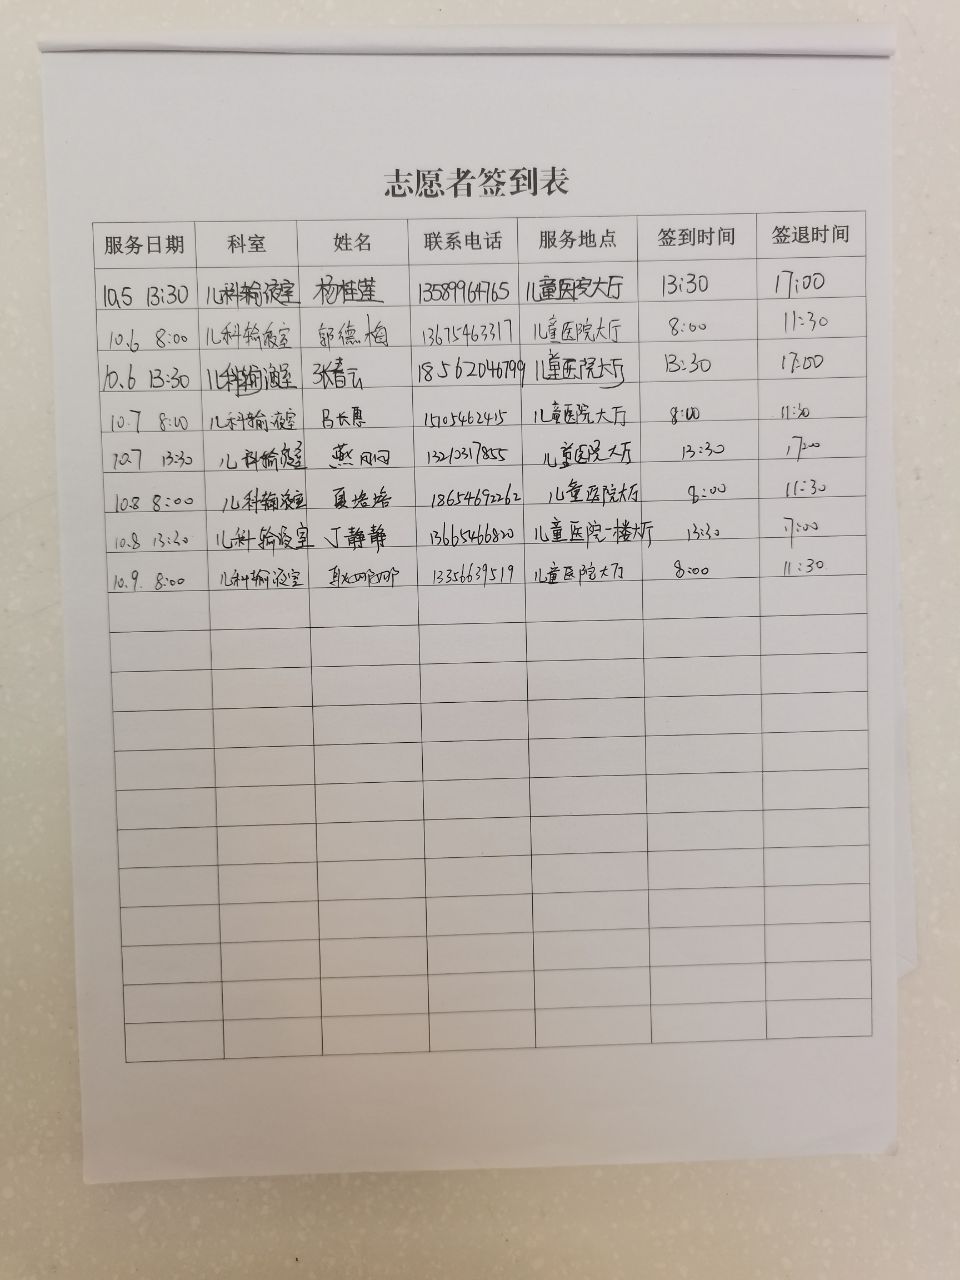 志愿者签到表
服务日期 科室 姓名 联系电话 服务地点 签到时间 签退时间
10.5 13:30 儿科输液室 杨桂莲 13589964765 儿童医院大厅 13:30 17:00
10.6 8:00 儿科输液室 郭德梅 13675463317 儿童医院大厅 8:00 11:30
10.6 13:30 儿科输液室 张春云 18562046799 儿童医院大厅 13:30 17:00
10.7 8:00 儿科输液室 吕长惠 15105462415 儿童医院大厅 8:00 11:30
10.7 13:30 儿科输液室 燕 13210317855 儿童医院大厅 13:30 17:00
10.8 8:00 儿科输液室 夏培培 18654692262 儿童医院大厅 8:00 11:30
10.8 13:30 儿科输液室 丁静静 13665466820 儿童医院一楼大厅 13:30 17:00
10.9. 8:00 儿科输液室 耿娜娜 13356639519 儿童医院大厅 8:00 11:30